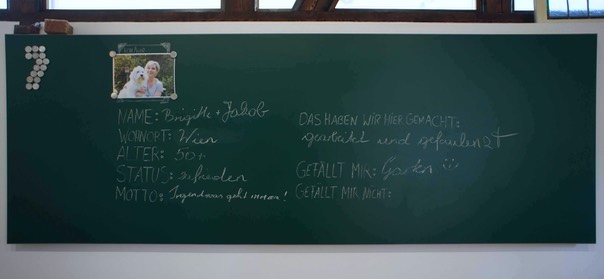 7
NAME: Brigitte + Jakob
WOHNORT: Wien
ALTER: 50+
STATUS: zufrieden
MOTTO: Irgendwas geht immer!
DAS HABEN WIR HIER GEMACHT:
gearbeitet und gefaulenzt
GEFÄLLT MIR: Garten
GEFÄLLT MIR NICHT: